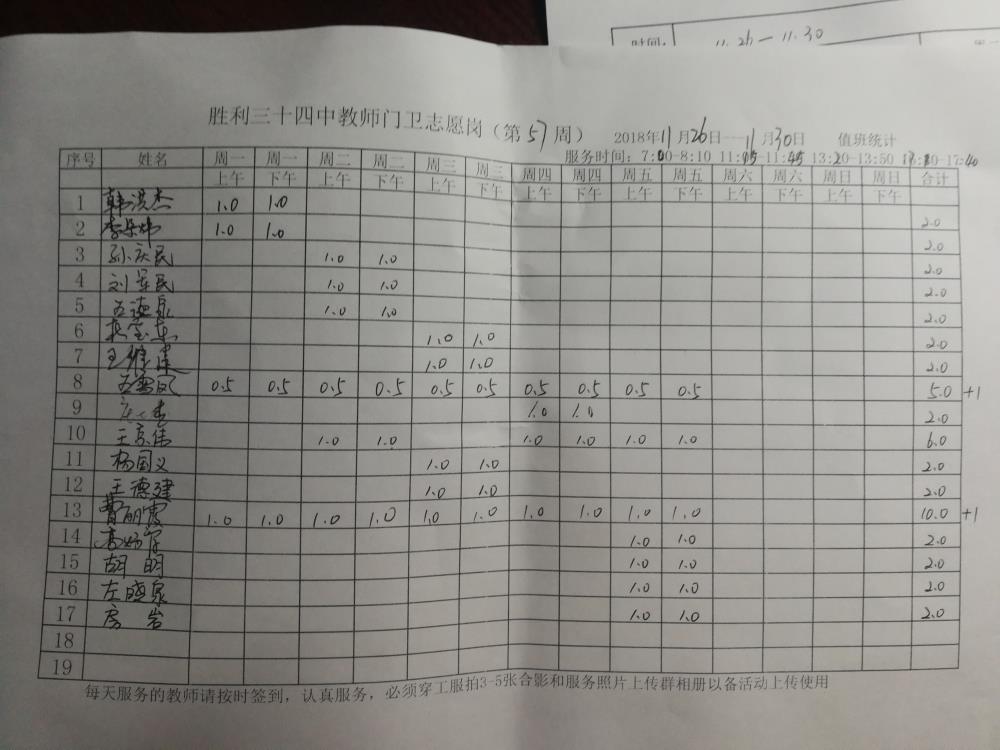 时间: 11.26 — 11.30
胜利三十四中教师门卫志愿岗（第57周） 2018年11月26日—11月30日 值班统计
服务时间：7:00-8:10 11:05-11:45 13:20-13:50 -17:40
序号 姓名 周一 周一 周二 周二 周三 周三 周四 周四 周五 周五 周六 周六 周日 周日 合计
上午 下午 上午 下午 上午 下午 上午 下午 上午 下午 上午 下午 上午 下午
1 韩洪杰 1.0 1.0 2.0
2 1.0 1.0 2.0
3 孙庆民 1.0 1.0 2.0
4 刘军民 1.0 1.0 2.0
5 1.0 1.0 2.0
6 1.0 1.0 2.0
7 1.0 1.0 2.0
8 0.5 0.5 0.5 0.5 0.5 0.5 0.5 0.5 0.5 0.5 5.0 +1
9 1.0 1.0 2.0
10 王京伟 1.0 1.0 1.0 1.0 1.0 1.0 6.0
11 杨国义 1.0 1.0 2.0
12 王德建 1.0 1.0 2.0
13 曹丽霞 1.0 1.0 1.0 1.0 1.0 1.0 1.0 1.0 1.0 1.0 10.0 +1
14 1.0 1.0 2.0
15 胡明 1.0 1.0 2.0
16 左晓泉 1.0 1.0 2.0
17 房岩 1.0 1.0 2.0
18
19
每天服务的教师请按时签到，认真服务，必须穿工服拍3-5张合影和服务照片上传群相册以备活动上传使用